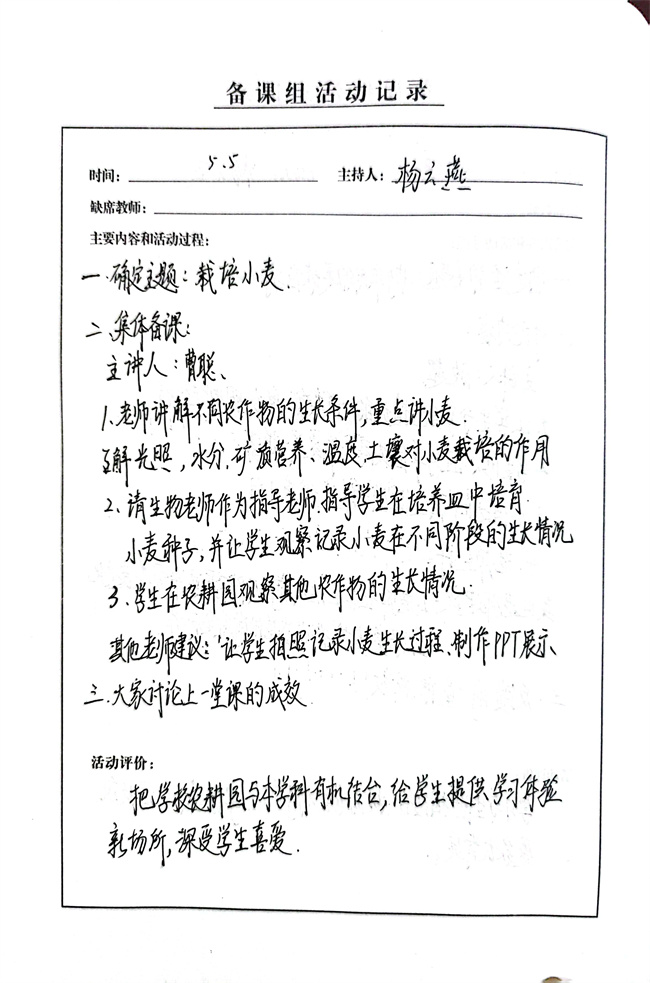 备课组活动记录
时间: 5.5 主持人: 杨云燕
缺席教师:
主要内容和活动过程:
一.确定主题:栽培小麦.
二.集体备课:
主讲人:曹聪、
1.老师讲解不同农作物的生长条件,重点讲小麦.
了解光照,水分.矿质营养、温度.土壤对小麦栽培的作用
2.请生物老师作为指导老师.指导学生在培养皿中培育
小麦种子,并让学生观察记录小麦在不同阶段的生长情况
3.学生在农耕园观察其他农作物的生长情况.
其他老师建议:让学生拍照记录小麦生长过程、制作PPT展示、
三.大家讨论上一堂课的成效
活动评价:
把学校农耕园与本学科有机结合,给学生提供学习体验
新场所,深受学生喜爱.